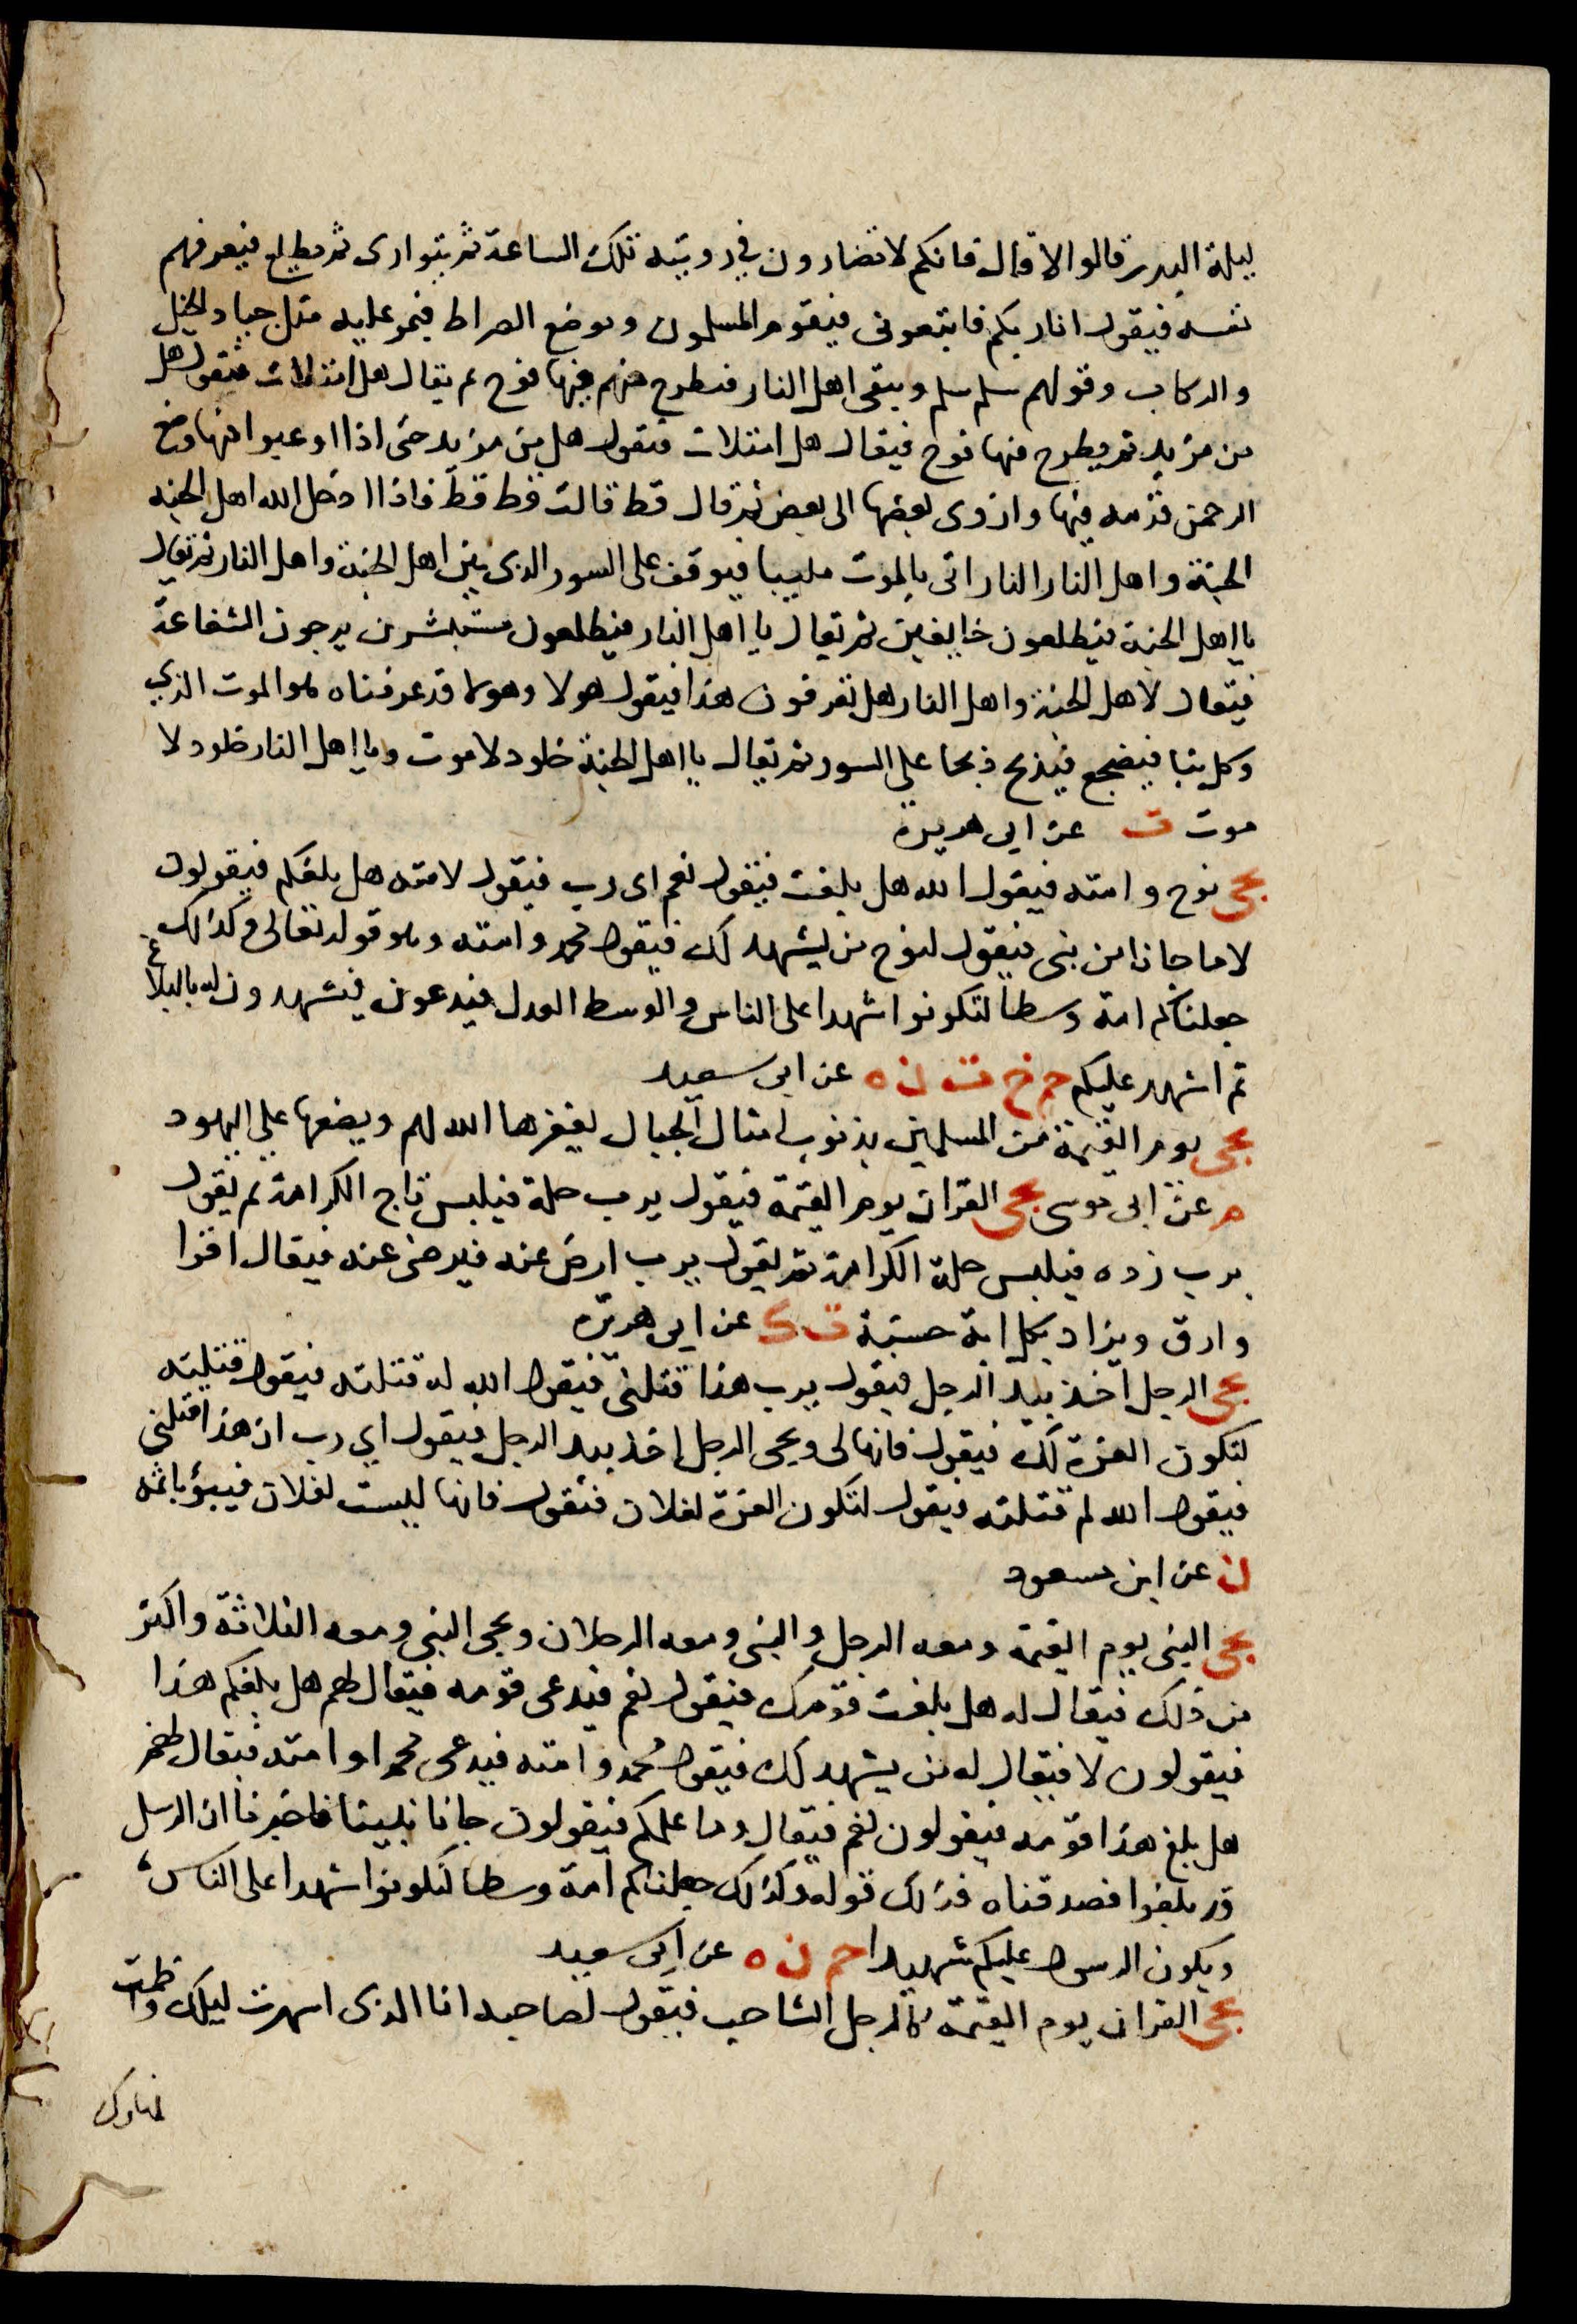 ليلة البدر قالوا لا قال فانكم لا تضارون في رويته تلك الساعة ثم يتوارى ثم يطلع فيعرفهم
نفسه فيقول انا ربكم فاتبعونى فيقوم المسلمون ويوضع الصراط فيمر عليه مثل جياد الخيل
والركاب وقولهم سلم سلم ويبقى اهل النار فيطرح منهم فيها فوج ثم يقال هل امتلات فتقول هل
من مزيد ثم يطرح فيها فوج فيقال هل امتلات فتقول هل من مزيد حتى اذا اوعبوا فيها وضع
الرحمن قدمه فيها وازوى بعضها الى بعض ثم قال قط قالت قط قط فاذا ادخل الله اهل الجنه
الجنة واهل النار النار اتى بالموت ملببا فيوقف على السور الذى بين اهل الجنة واهل النار ثم يقال
يا اهل الجنة فيطلعون خايفين ثم يقال يا اهل النار فيطلعون مستبشرين يرجون الشفاعة
فيقال لاهل الجنة واهل النار هل تعرفون هذا فيقول هولا وهولا قد عرفناه هو الموت الذى
وكل بنا فيضجع فيذبح ذبحا على السور ثم يقال يا اهل الجنة خلود لا موت ويا اهل النار خلود لا
موت ت عن ابى هريرة
يجى نوح وامته فيقول الله هل بلغت فيقول نعم اى رب فيقول لامته هل بلغكم فيقولون
لا ما جانا من نبى فيقول لنوح من يشهد لك فيقول محمد وامته وهو قوله تعالى وكذالك
جعلناكم امة وسطا لتكونوا شهدا على الناس والوسط العدل فيدعون فيشهدون له بالبلاغ
ثم اشهد عليكم حم خ ت ن ه عن ابى سعيد
يجى يوم القيمة من المسلمين بذنوب امثال الجبال يغفرها الله لهم ويضعها على اليهود
م عن ابى موسى يجى القران يوم القيمة فيقول يرب حلة فيلبس تاج الكرامة ثم يقول
يرب زده فيلبس حلة الكرامة ثم يقول يرب ارض عنه فيرضى عنه فيقال اقرا
وارق ويزاد بكل اية حسنة ت ك عن ابى هريرة
يجى الرجل اخذ بيد الرجل فيقول يرب هذا قتلنى فيقول الله له قتلته فيقول قتلته
لتكون العزة لك فيقول فانها لى ويجى الرجل اخذ بيد الرجل فيقول اي رب ان هذا قتلنى
فيقول الله لم قتلته فيقول لتكون العزة لفلان فيقول فانها ليست لفلان فيبؤ باثمه
ن عن ابن مسعود
يجى النبى يوم القيمة ومعه الرجل والنبى ومعه الرجلان ويجى النبى ومعه الثلاثة واكثر
من ذلك فيقال له هل بلغت قومك فيقول نعم فيدعى قومه فيقال لهم هل بلغكم هذا
فيقولون لا فيقال له من يشهد لك فيقول محمد وامته فيدعى محمد وامته فيقال لهم
هل بلغ هذا قومه فيقولون نعم فيقال وما علمكم فيقولون جانا نبينا فاخبرنا ان الرسل
قد بلغوا فصدقناه فذلك قوله وكذلك جعلناكم امة وسطا لتكونوا شهدا على الناس
ويكون الرسول عليكم شهيدا حم ن ه عن ابى سعيد
يجى القران يوم القيمة كالرجل الشاحب فيقول لصاحبه انا الذى اسهرت ليلك واظمات
نهارك